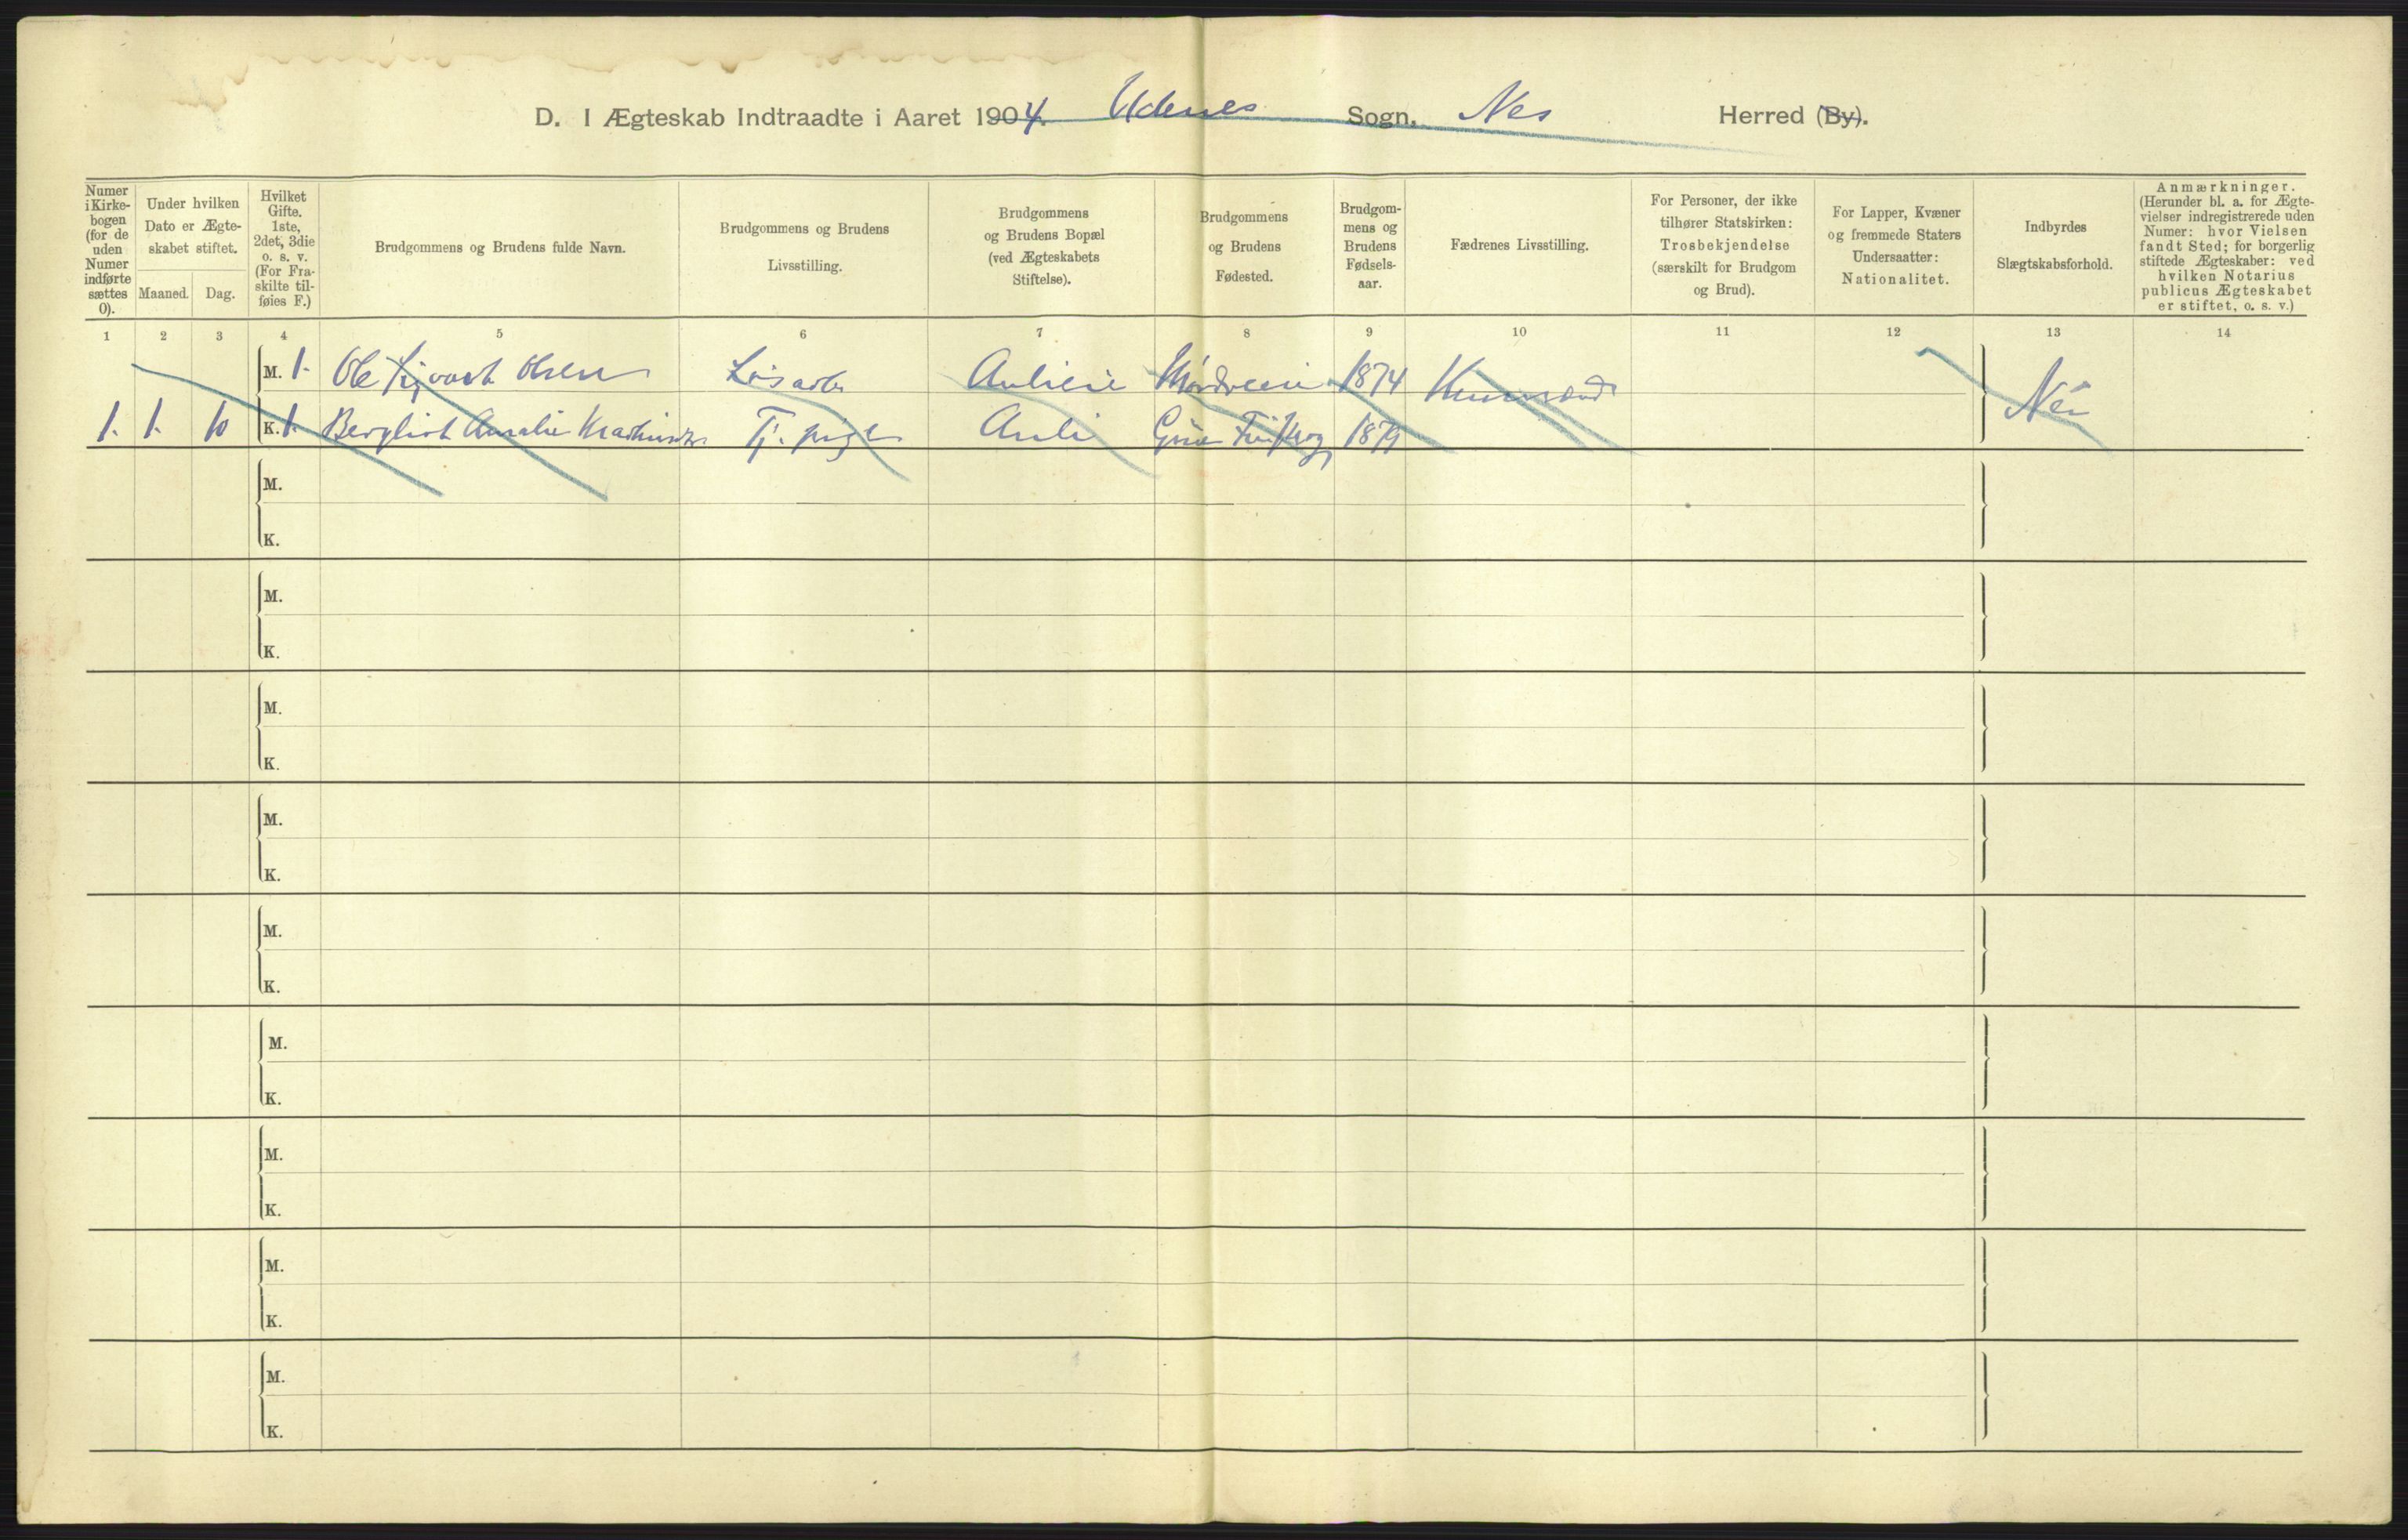 D. I Ægteskab Indtraadte i Aaret 1904. Udenes Sogn. Nes Herred (By).
Numer i Kirkebogen (for de uden Numer indførte sættes 0).
Under hvilken Dato er Ægteskabet stiftet.
Maaned. Dag.
Hvilket Gifte. 1ste, 2det, 3die o. s. v. (For Fraskilte tilføies F.)
Brudgommens og Brudens fulde Navn.
Brudgommens og Brudens Livsstilling.
Brudgommens og Brudens Bopæl (ved Ægteskabets Stiftelse).
Brudgommens og Brudens Fødested.
Brudgommens og Brudens Fødselsaar.
Fædrenes Livsstilling.
For Personer, der ikke tilhører Statskirken: Trosbekjendelse (særskilt for Brudgom og Brud).
For Lapper, Kvæner og fremmede Staters Undersaatter: Nationalitet.
Indbyrdes Slægtskabsforhold.
Anmærkninger. (Herunder bl. a. for Ægtevielser indregistrerede uden Numer: hvor Vielsen fandt Sted; for borgerlig stiftede Ægteskaber: ved hvilken Notarius publicus Ægteskabet er stiftet, o. s. v.)
1 2 3 4 5 6 7 8 9 10 11 12 13 14
M. 1. Ole Sigvart Olsen Auli 1874 Nei
1. 1. 10 K. 1. Bergliot Amalie Tj. pige Auli 1879
M.
K.
M.
K.
M.
K.
M.
K.
M.
K.
M.
K.
M.
K.
M.
K.
M.
K.